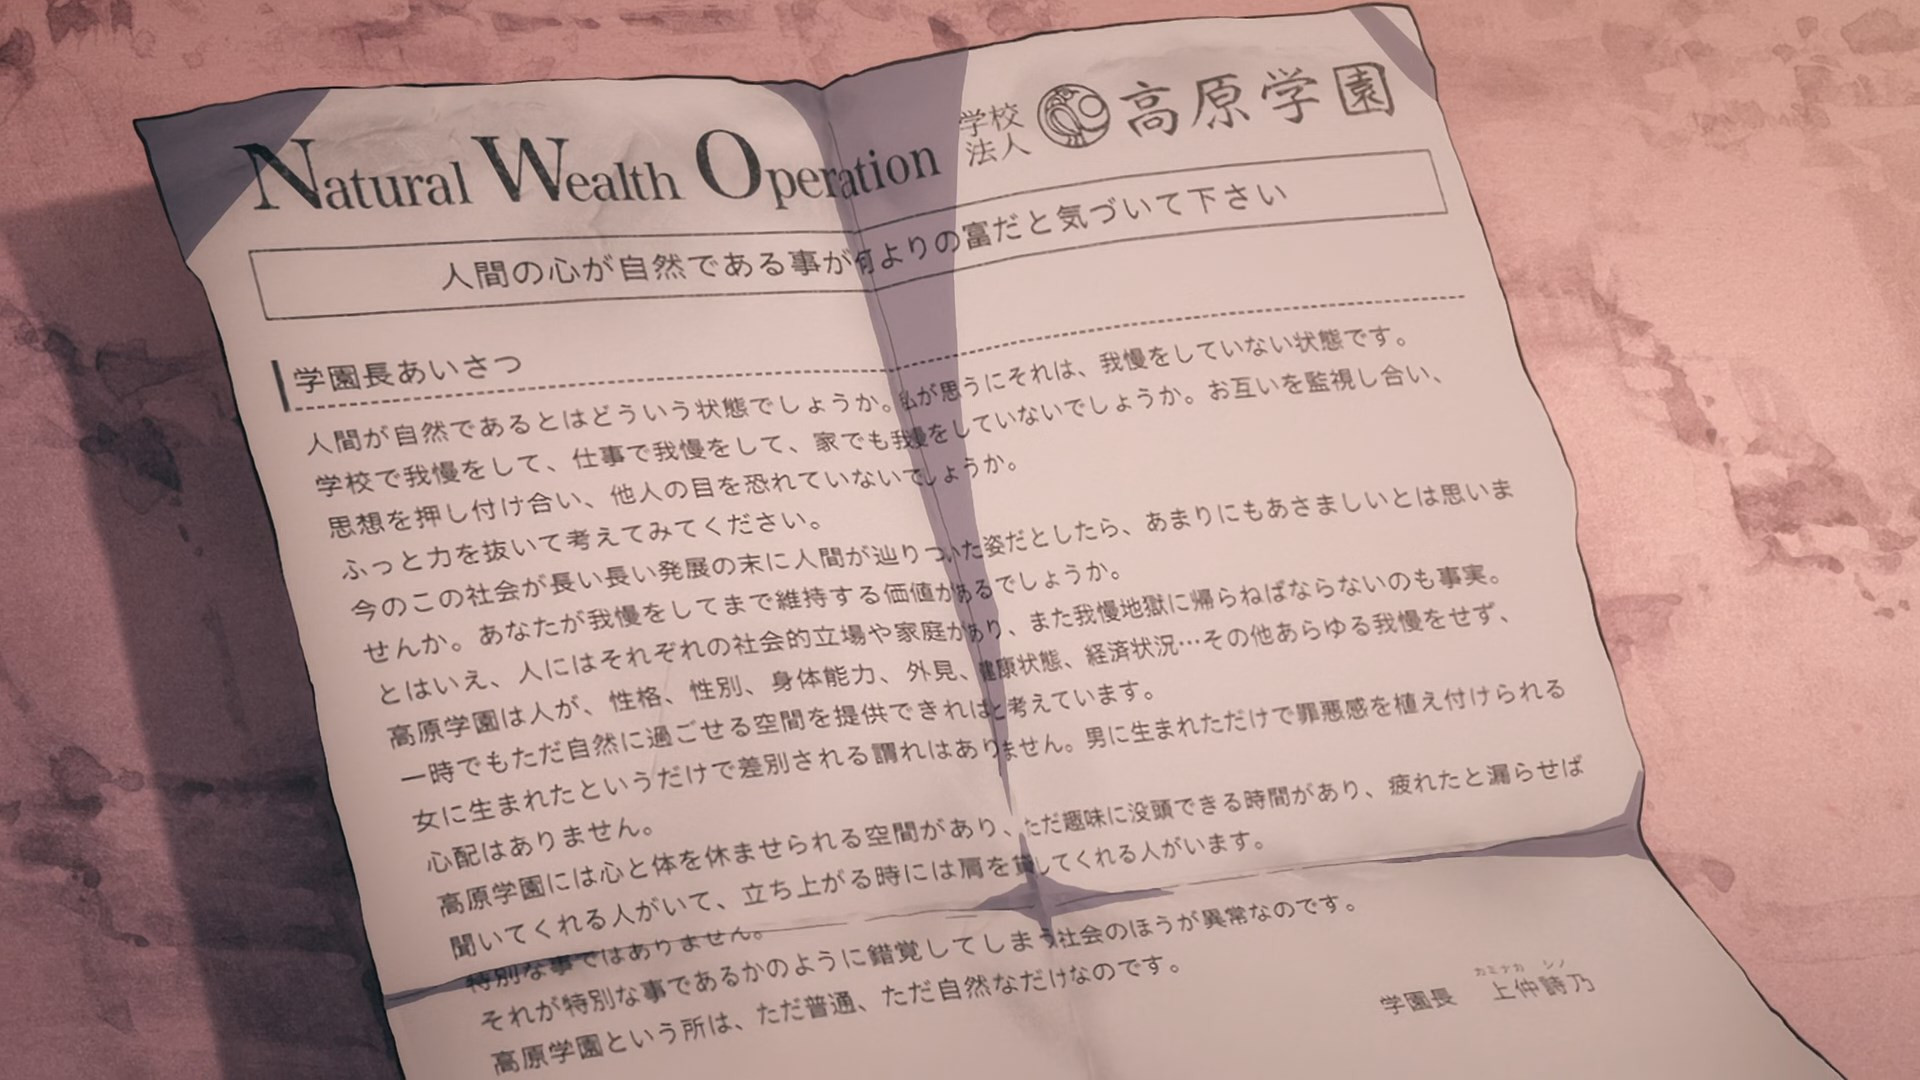 Natural Wealth Operation
学校
法人
高原学園
人間の心が自然である事が何よりの富だと気づいて下さい
学園長あいさつ
人間が自然であるとはどういう状態でしょうか。私が思うにそれは、我慢をしていない状態です。
学校で我慢をして、仕事で我慢をして、家でも我慢をしていないでしょうか。お互いを監視し合い、
思想を押し付け合い、他人の目を恐れていないでしょうか。
ふっと力を抜いて考えてみてください。
今のこの社会が長い長い発展の末に人間が辿りついた姿だとしたら、あまりにもあさましいとは思いま
せんか。あなたが我慢をしてまで維持する価値があるでしょうか。
とはいえ、人にはそれぞれの社会的立場や家庭があり、また我慢地獄に帰らねばならないのも事実。
高原学園は人が、性格、性別、身体能力、外見、健康状態、経済状況…その他あらゆる我慢をせず、
一時でもただ自然に過ごせる空間を提供できればと考えています。
女に生まれたというだけで差別される謂れはありません。男に生まれただけで罪悪感を植え付けられる
心配はありません。
高原学園には心と体を休ませられる空間があり、ただ趣味に没頭できる時間があり、疲れたと漏らせば
聞いてくれる人がいて、立ち上がる時には肩を貸してくれる人がいます。
特別な事ではありません。
それが特別な事であるかのように錯覚してしまう社会のほうが異常なのです。
高原学園という所は、ただ普通、ただ自然なだけなのです。
カミナカ シノ
学園長 上仲詩乃